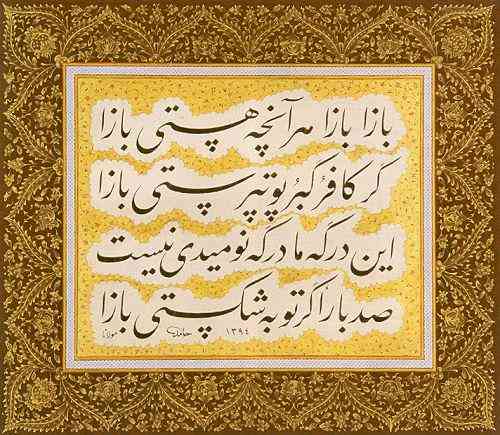 بازا بازا هرآنچه هستی بازا
گر کافر گبر و بت پرستی بازا
این درگه ما درگه نومیدی نیست
صد بار اگر توبه شکستی بازا
۱۳۹۴ مولانا